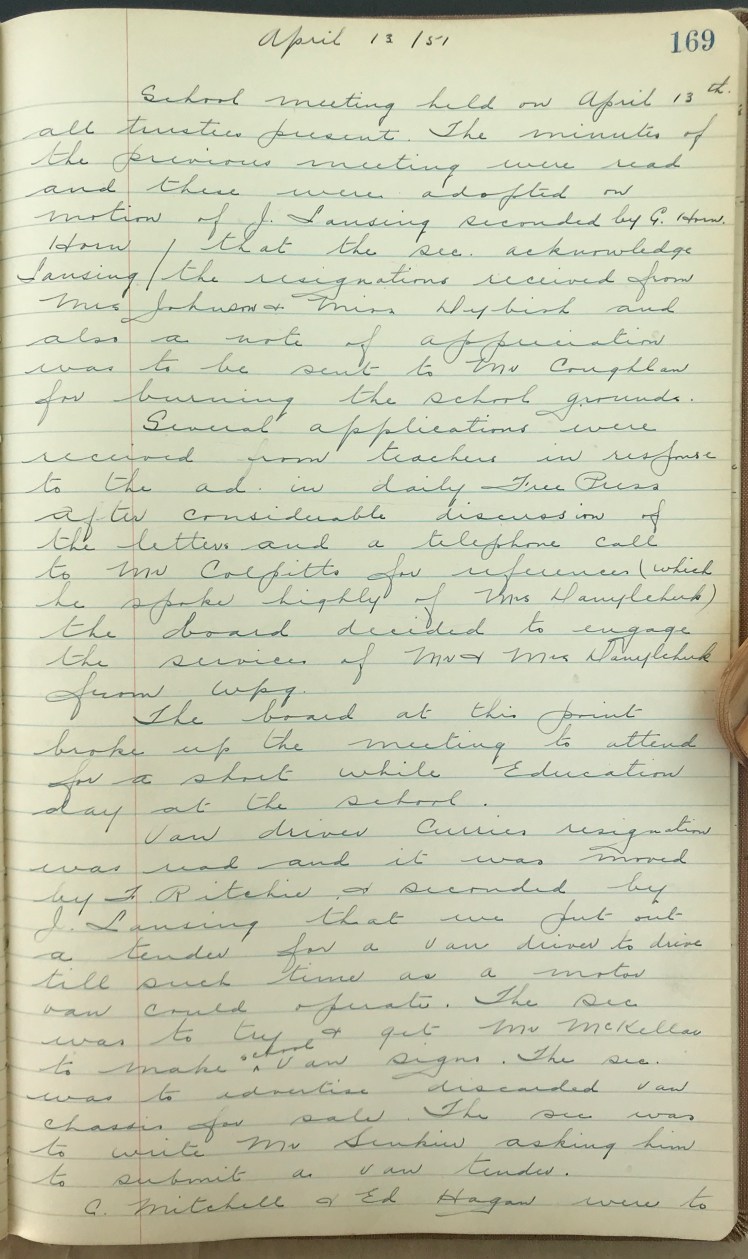 April 13/51
169
School meeting held on April 13th.
all trustees present. The minutes of
the previous meeting were read
and these were adopted on
motion of J. Lansing seconded by G. Horn.
Horn / that the sec. acknowledge
Lansing / the resignations received from
Mrs Johnson & Miss Dybish and
also a note of appreciation
was to be sent to Mr Coughlan
for burning the school grounds.
Several applications were
received from teachers in response
to the ad. in daily Free Press
After considerable discussion of
the letters and a telephone call
to Mr Colpitts for references (which
he spoke highly of Mrs Danylchuk)
the board decided to engage
the services of Mr & Mrs Danylchuk
from Wpg.
The board at this point
broke up the meeting to attend
for a short while Education
day at the school.
Van driver Curries resignation
was read and it was moved
by F. Ritchie & seconded by
J. Lansing that we put out
a tender for a van driver to drive
till such time as a motor
van could operate. The sec
was to try & get Mr McKellar
to make school van signs. The sec.
was to advertise discarded van
chassis for sale. The sec was
to write Mr asking him
to submit a van tender.
C. Mitchell & Ed Hagan were to